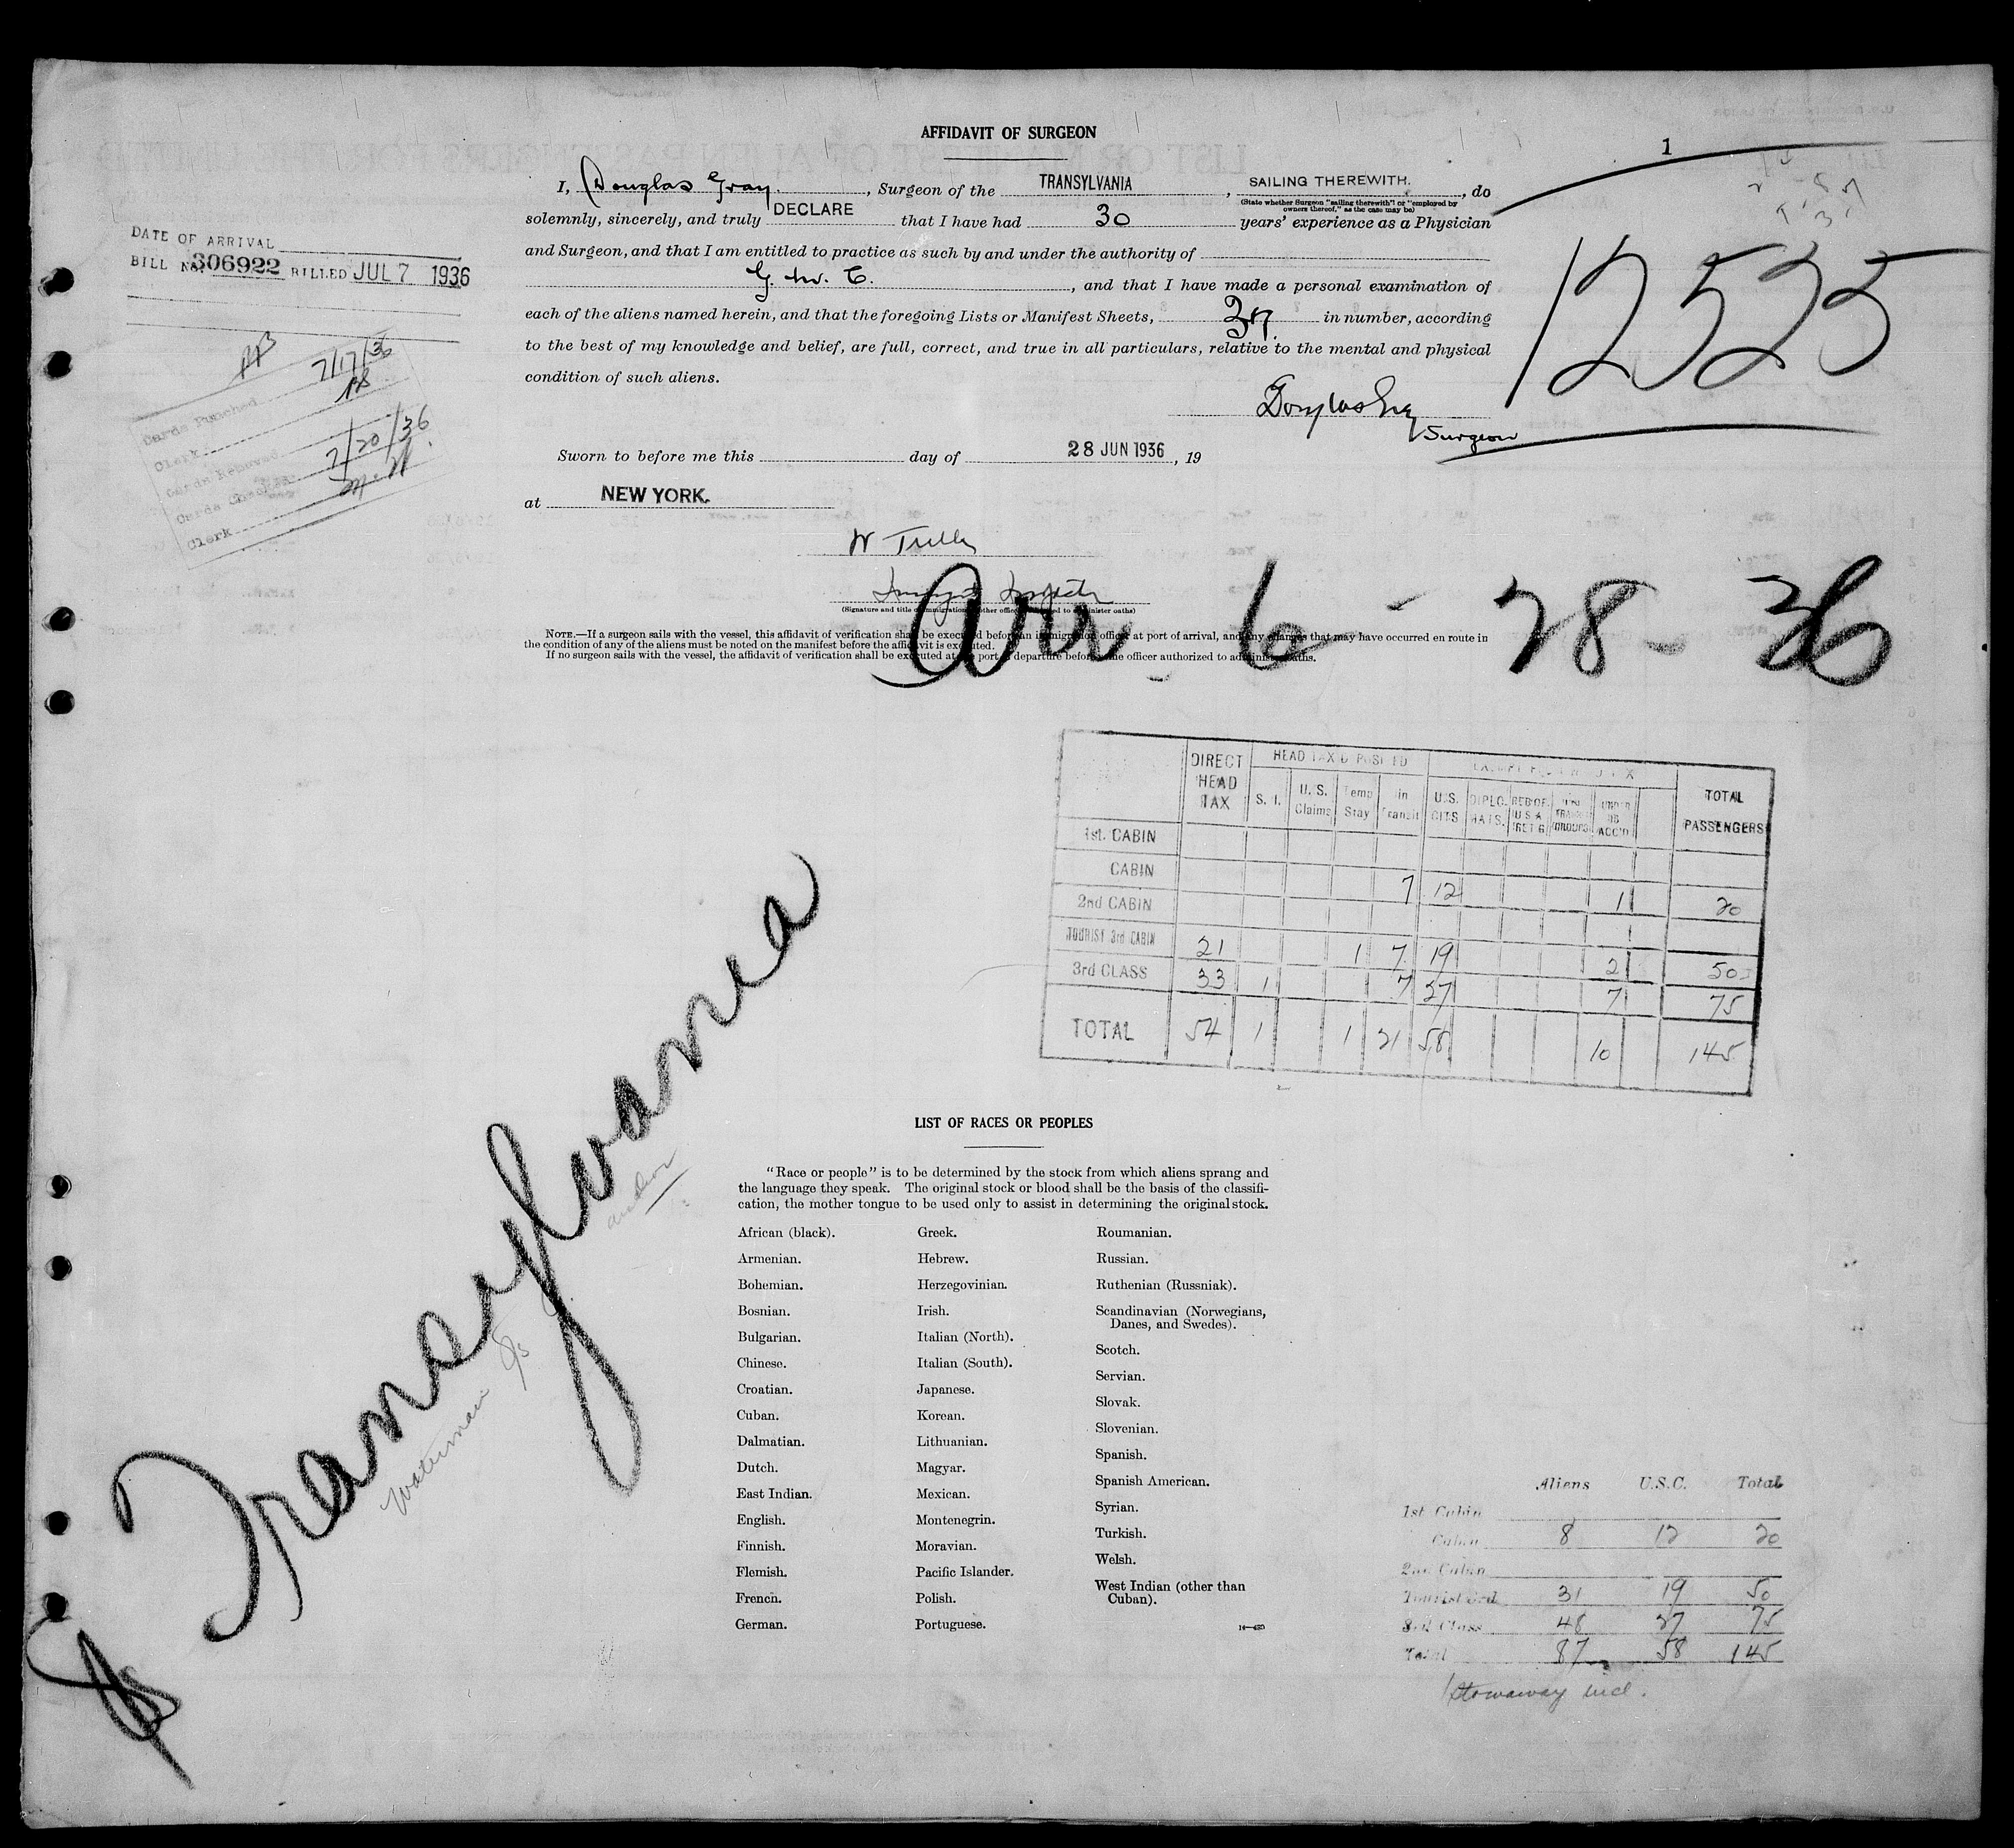 AFFIDAVIT OF SURGEON
1
I, Douglas Gray, Surgeon of the TRANSYLVANIA, SAILING THEREWITH., do
(State whether Surgeon "sailing therewith" or "employed by owners thereof," as the case may be)
solemnly, sincerely, and truly DECLARE that I have had 30 years' experience as a Physician
and Surgeon, and that I am entitled to practice as such by and under the authority of
, and that I have made a personal examination of
each of the aliens named herein, and that the foregoing Lists or Manifest Sheets, in number, according
to the best of my knowledge and belief, are full, correct, and true in all particulars, relative to the mental and physical
condition of such aliens.
Douglas Gray
Surgeon
12525
DATE OF ARRIVAL
BILL No. 306922 BILLED JUL 7 1936
7/17/36
Cards Punched
Clerk
Cards Removed
7/20/36
Cards Checked
Clerk
Sworn to before me this day of 28 JUN 1936, 19
at NEW YORK.
(Signature and title of immigration or other officer authorized to administer oaths)
Arr 6 - 28 - 36
NOTE.—If a surgeon sails with the vessel, this affidavit of verification shall be executed before an immigration officer at port of arrival, and any changes that may have occurred en route in
the condition of any of the aliens must be noted on the manifest before the affidavit is executed.
If no surgeon sails with the vessel, the affidavit of verification shall be executed at the port of departure before the officer authorized to administer oaths.
DIRECT HEAD TAX HEAD TAX DEPOSITED TOTAL PASSENGERS
S. I. U. S. Claims Temp Stay in Transit U.S. CITS DIPLO-MATS.
1st. CABIN
CABIN 7 12 1 20
2nd CABIN
TOURIST 3rd CABIN 21 1 7 19 2 50
3rd CLASS 33 1 7 27 7 75
TOTAL 54 1 1 21 58 10 145
Transylvania
Waterman
LIST OF RACES OR PEOPLES
"Race or people" is to be determined by the stock from which aliens sprang and
the language they speak. The original stock or blood shall be the basis of the classifi-
cation, the mother tongue to be used only to assist in determining the original stock.
African (black).
Armenian.
Bohemian.
Bosnian.
Bulgarian.
Chinese.
Croatian.
Cuban.
Dalmatian.
Dutch.
East Indian.
English.
Finnish.
Flemish.
French.
German.
Greek.
Hebrew.
Herzegovinian.
Irish.
Italian (North).
Italian (South).
Japanese.
Korean.
Lithuanian.
Magyar.
Mexican.
Montenegrin.
Moravian.
Pacific Islander.
Polish.
Portuguese.
Roumanian.
Russian.
Ruthenian (Russniak).
Scandinavian (Norwegians,
Danes, and Swedes).
Scotch.
Servian.
Slovak.
Slovenian.
Spanish.
Spanish American.
Syrian.
Turkish.
Welsh.
West Indian (other than
Cuban).
Aliens U.S.C. Total
1st Cabin
Cabin 8 12 20
2nd Cabin
Tourist 3rd 31 19 50
3rd Class 48 27 75
Total 87 58 145
1 Stowaway incl.